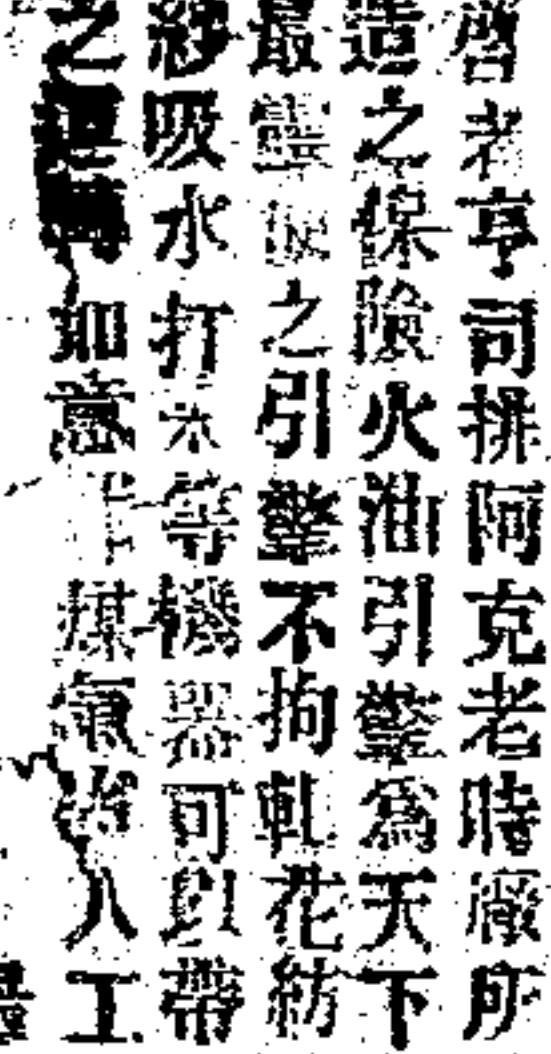 啓者亨司排阿克老時廠所
造之保險火油引擎爲天下
最靈之引擎不拘軋花紡
紗吸水打米等機器可以帶
之運如意煤氣人工